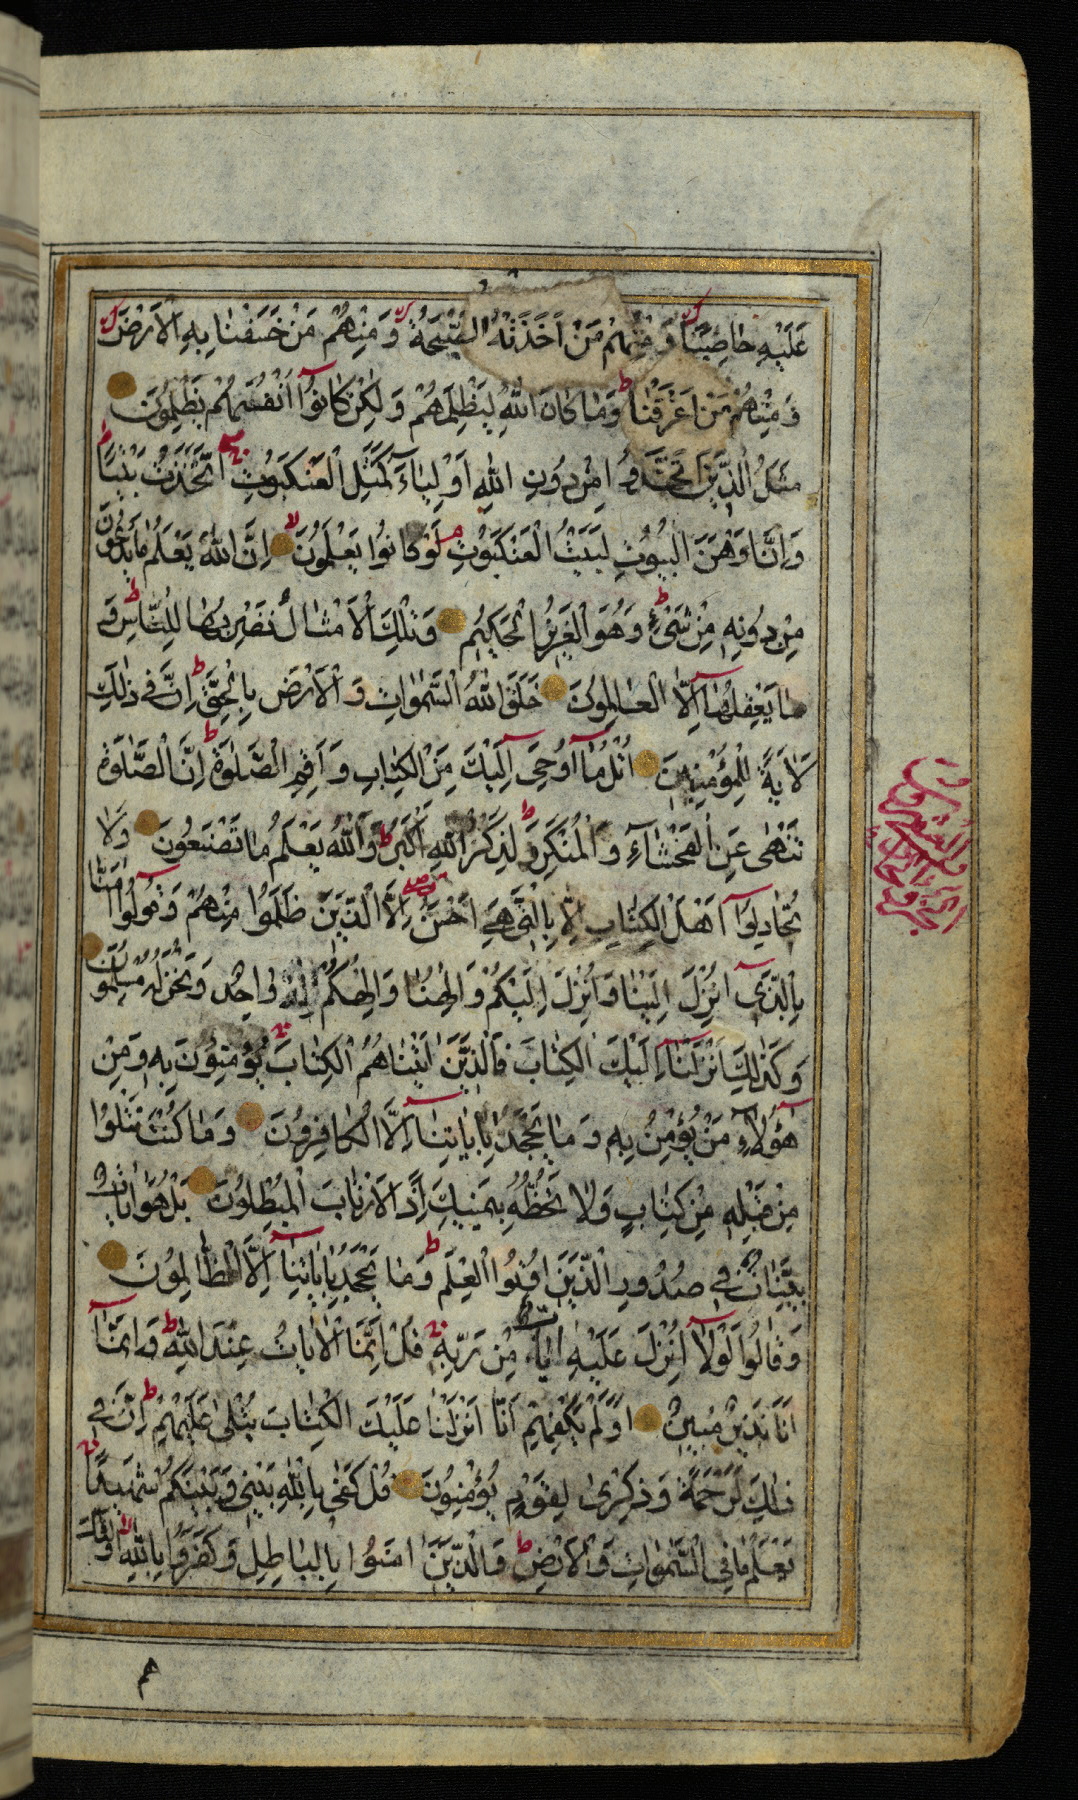 عَلَيْهِ حاصِبًا وَمِنْهُمْ مَنْ اَخَذَتْهُ الصَّيْحَةُ وَمِنْهُمْ مَنْ خَسَفْنا بِهِ الْاَرْضَ
وَمِنْهُمْ مَنْ اَغْرَقْنا وَما كانَ اللّٰهُ لِيَظْلِمَهُمْ وَلٰكِنْ كانُوا اَنْفُسَهُمْ يَظْلِمُونَ
مَثَلُ الَّذينَ اتَّخَذُوا مِنْ دُونِ اللّٰهِ اَوْلِيآءَ كَمَثَلِ الْعَنْكَبُوتِ اتَّخَذَتْ بَيْتًا
وَاِنَّ اَوْهَنَ الْبُيُوتِ لَبَيْتُ الْعَنْكَبُوتِ لَوْ كانُوا يَعْلَمُونَ اِنَّ اللّٰهَ يَعْلَمُ ما يَدْعُونَ
مِنْ دُونِهِ مِنْ شَيْءٍ وَهُوَ الْعَزيزُ الْحَكيمُ وَتِلْكَ الْاَمْثالُ نَضْرِبُها لِلنّاسِ وَ
ما يَعْقِلُهآ اِلَّا الْعالِمُونَ خَلَقَ اللّٰهُ السَّمٰواتِ وَ الْاَرْضَ بِالْحَقِّ اِنَّ في ذٰلِكَ
لَاٰيَةً لِلْمُؤْمِنينَ اُتْلُ مآ اُوحِيَ اِلَيْكَ مِنَ الْكِتابِ وَاَقِمِ الصَّلٰوةَ اِنَّ الصَّلٰوةَ
تَنْهٰى عَنِ الْفَحْشآءِ وَالْمُنْكَرِ وَلَذِكْرُ اللّٰهِ اَكْبَرُ وَاللّٰهُ يَعْلَمُ ما تَصْنَعُونَ وَلا
تُجادِلُوآ اَهْلَ الْكِتابِ اِلّا بِالَّتي هِيَ اَحْسَنُ اِلَّا الَّذينَ ظَلَمُوا مِنْهُمْ وَقُولُوآ اٰمَنّا
بِالَّذي اُنْزِلَ اِلَيْنا وَاُنْزِلَ اِلَيْكُمْ وَاِلٰهُنا وَاِلٰهُكُمْ اِلٰهٌ واحِدٌ وَنَحْنُ لَهُ مُسْلِمُونَ
وَكَذٰلِكَ اَنْزَلْنآ اِلَيْكَ الْكِتابَ فَالَّذينَ اٰتَيْناهُمُ الْكِتابَ يُؤْمِنُونَ بِهِ وَمِنْ
هٰؤُلآءِ مَنْ يُؤْمِنُ بِهِ وَما يَجْحَدُ بِاٰياتِنآ اِلَّا الْكافِرُونَ وَما كُنْتَ تَتْلُوا
مِنْ قَبْلِهِ مِنْ كِتابٍ وَلا تَخُطُّهُ بِيَمينِكَ اِذًا لَارْتابَ الْمُبْطِلُونَ بَلْ هُوَ اٰياتٌ
بَيِّناتٌ في صُدُورِ الَّذينَ اُوتُوا الْعِلْمَ وَما يَجْحَدُ بِاٰياتِنآ اِلَّا الظّالِمُونَ
وَقالُوا لَوْلآ اُنْزِلَ عَلَيْهِ اٰياتٌ مِنْ رَبِّهِ قُلْ اِنَّمَا الْاٰياتُ عِنْدَ اللّٰهِ وَاِنَّمآ
اَنَا نَذيرٌ مُبينٌ اَوَلَمْ يَكْفِهِمْ اَنّا اَنْزَلْنا عَلَيْكَ الْكِتابَ يُتْلٰى عَلَيْهِمْ اِنَّ في
ذٰلِكَ لَرَحْمَةً وَذِكْرٰى لِقَوْمٍ يُؤْمِنُونَ قُلْ كَفٰى بِاللّٰهِ بَيْني وَبَيْنَكُمْ شَهيدًا
يَعْلَمُ ما فِي السَّمٰواتِ وَالْاَرْضِ وَالَّذينَ اٰمَنُوا بِالْباطِلِ وَكَفَرُوا بِاللّٰهِ اُولٰئِكَ
هم